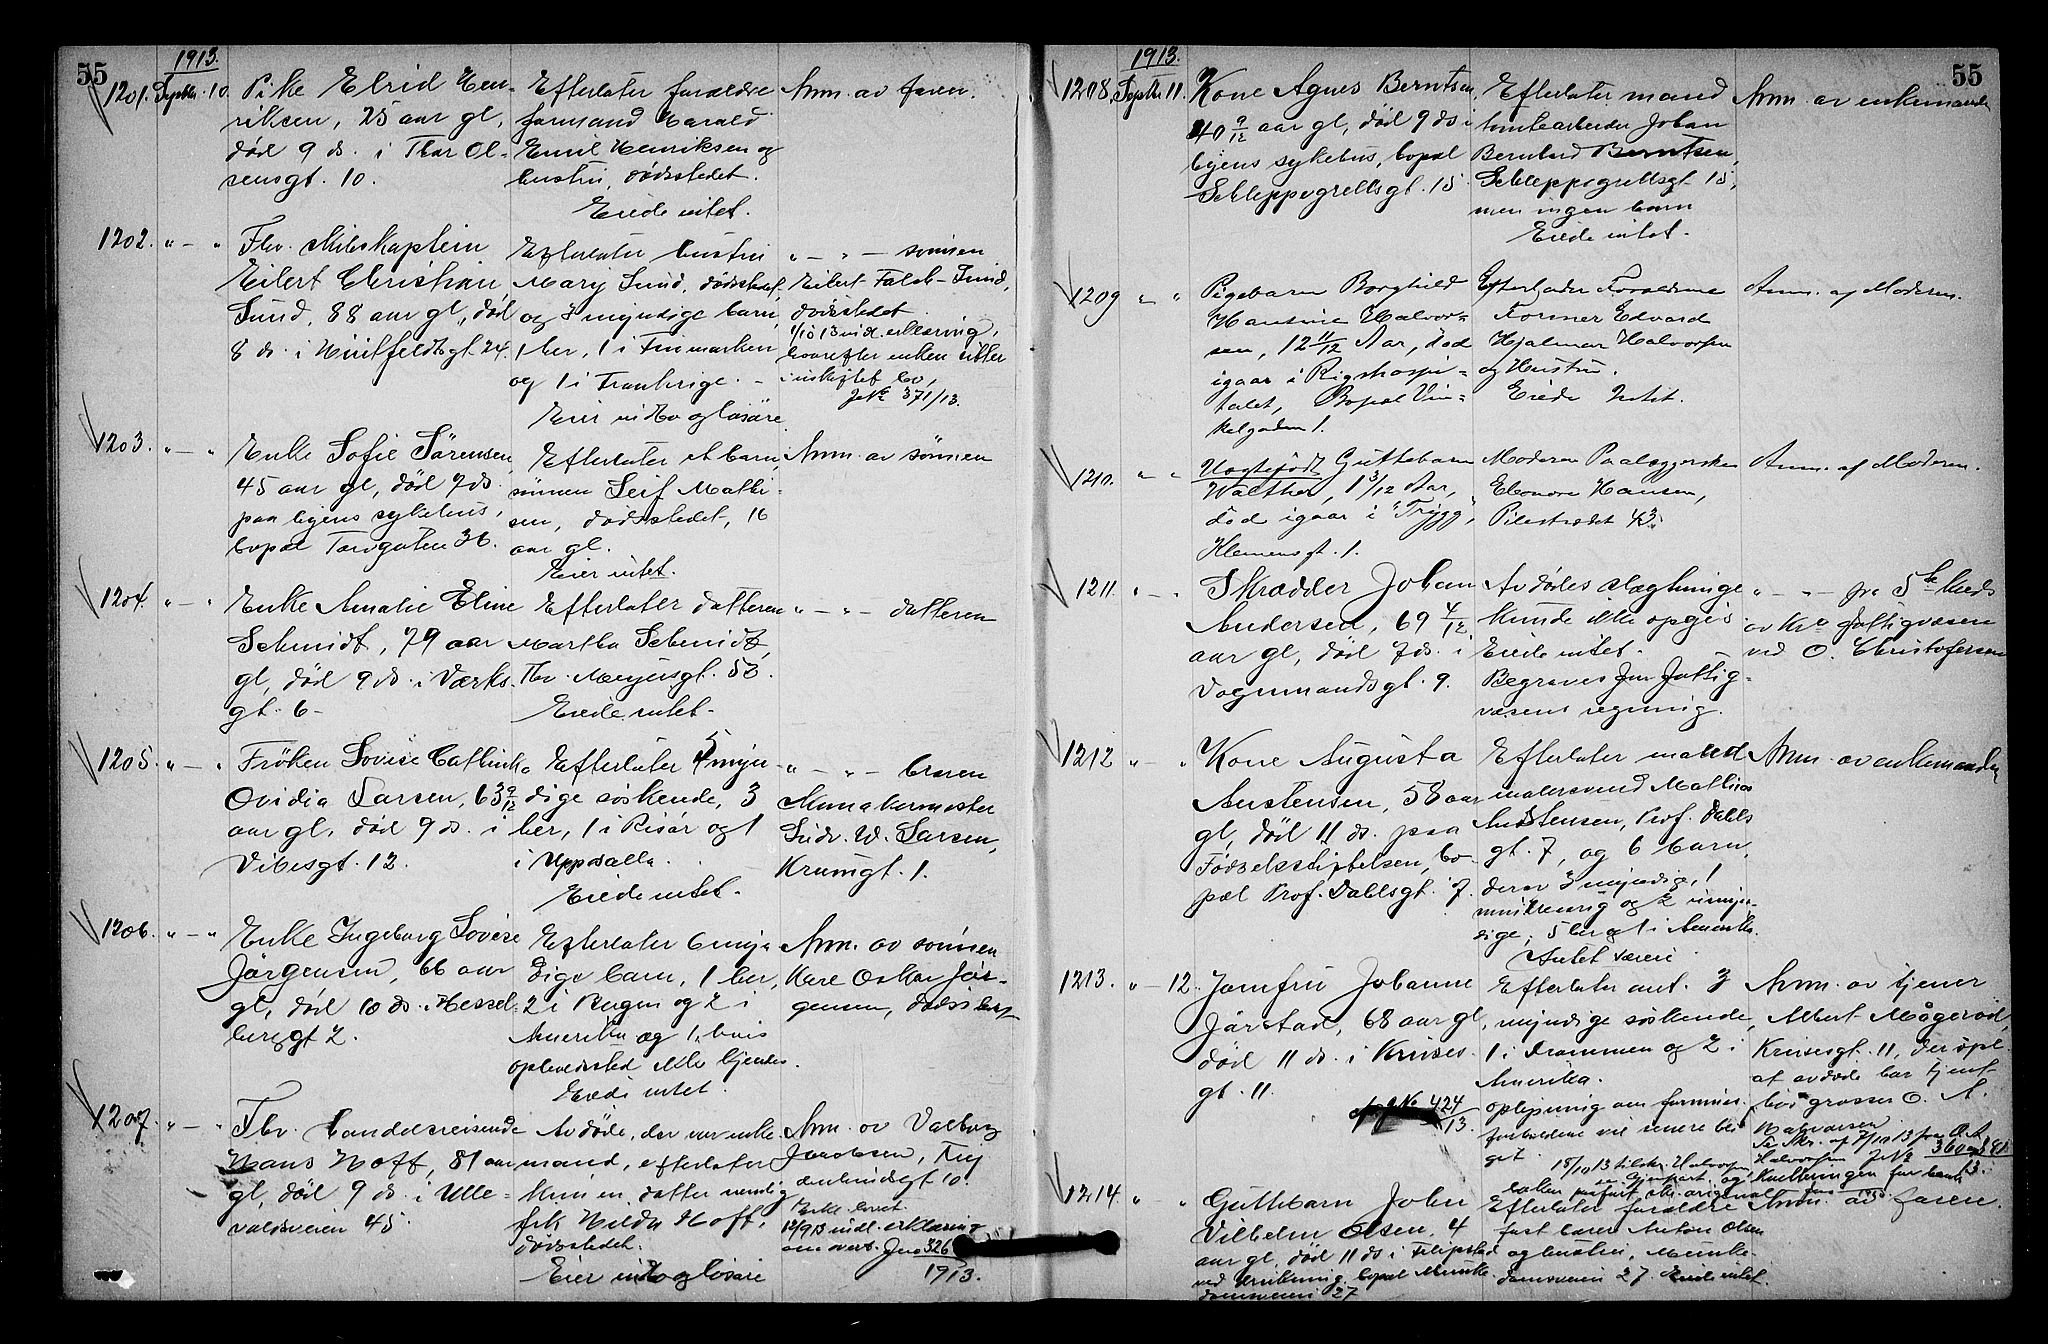 55
1913.
1201. Septbr. 10.
Pike Elrid Hen-
riksen, 25 aar gl,
død 9 ds. i Thor Ol-
sensgt. 10.
Efterlater forældre
formand Harald
Emil Henriksen og
hustru, dødsstedet.
Eiede intet.
Anm. av faren.
1202. " — "
Fhv. skibskaptein
Eilert Christian
Sund, 88 aar gl, død
8 ds. i Huitfeldtsgt. 24.
Efterlater hustru
Mary Sund, dødsstedet,
og 3 myndige barn,
1 her, 1 i Finmarken
og 1 i Frankrige. –
Eier indbo og løsøre
" — " — sønnen
Eilert Falch-Sund,
dødsstedet.
1/10 13 indl. erklæring,
hvorefter enken sitter
i uskiftet bo,
JNo 371/13.
1203. " — "
Enke Sofie Sørensen,
45 aar gl, død 7 ds.
paa byens sykehus,
bopæl Torvgaten 36.
Efterlater et barn,
sønnen Leif Mathi-
sen, dødsstedet, 16
aar gl.
Eier intet.
Anm. av sønnen
1204. " — "
Enke Amalie Eline
Schmidt, 79 aar
gl, død 9 ds. i Værks-
gt. 6 –
Efterlater datteren
Martha Schmidt,
Thv. Meyersgt. 58.
Eiede intet.
" — " — datteren
1205. " — "
Frøken Lovise Cathinka
Ovidia Larsen, 63 9/12
aar gl, død 9 ds. i
Vibesgt. 12.
Efterlater 5 myn-
dige søskende, 3
her, 1 i Risør og 1
i Uppsalla.
Eiede intet.
" — " — broren
Skomakermester
Ludv. W. Larsen,
Krumgt. 1.
1206. " — "
Enke Ingeborg Lovise
Jørgensen, 66 aar
gl, død 10 ds. i Hessel-
berggt 2.
Efterlater 6 myn-
dige barn, 1 her,
2 i Bergen og 2 i
Amerika og 1, hvis
opholdssted ikke kjendes.
Eiede intet
Anm. av sønnen
Kare Oskar Jør-
gensen,
1207. " — "
Fhv. handelsreisende
Hans Hoff, 81 aar
gl, død 9 ds. i Ulle-
valdsveien 45.
Avdøde, der var enke-
mand, efterlater
kun en datter nemlig
frk Hilda Hoff,
dødsstedet.
Eier indbo og løsøre
Anm. av Valborg
Jacobsen,
12/9 13 indl. erklæring
om overt. Jno 326
1913.
55
1913.
1208. Septbr 11.
Kone Agnes Berntsen,
40 9/12 aar gl, død 9 ds i
byens sykehus, bopæl
Schleppegrellsgt. 15.
Efterlater mand
tomtearbeider Johan
Bernhard Berntsen,
Schleppegrellsgt 15,
men ingen barn
Eiede intet.
Anm. av enkemanden
1209 " "
Pigebarn Borghild
Hansine Halvor-
sen, 12 11/12 Aar, død
igaar i Rigshospi-
talet, Bopæl Vin-
kelgaden 1.
Efterlader Forældrene
Former Edvard
Hjalmar Halvorsen
og Hustru.
Eiede Intet.
Anm. af Moderen.
1210. " "
Uægtefødt Guttebarn
Walther, 1 3/12 Aar,
død igaar i "Trygg",
Klemensgt. 1.
Moderen Paalæggerske
Eleonore Hansen,
Pilestrædet 43.
Anm. af Moderen.
1211. " — "
Skrædder Johan
Andersen, 69 4/12
aar gl, død 7 ds. i
Vognmandsgt. 9.
Avdødes slægtninge
kunde ikke opgis
Eiede intet.
Begraves for fattig-
væsens regning.
" — " — fra 5te kreds
av Kra fattigvæsen
ved O. Christofersen
1212 " — "
Kone Augusta
Austensen, 58 aar
gl, død 11 ds. paa
Fødselsstiftelsen, bo-
pæl Prof. Dahlsgt. 7.
Efterlater mand
malersvend Mathias
Austensen, Prof. Dahls
gt. 7, og 6 barn,
derav 3 myndige, 1
mindreaarig og 2 umyn-
dige, 5 her og 1 i Amerika.
Intet være
Anm. av enkemanden
1213. " — 12.
Jomfru Johanne
Jørstad, 68 aar gl,
død 11 ds. i Kruses-
gt. 11.
JNo 424/13.
Efterlater ant. 3
myndige søskende,
1 i Drammen og 2 i
Amerika.
oplysning om formues-
forholdene vil senere bli
git.
Anm. av tjener
Albert Mågerød,
Krusesgt. 11,
at avdøde har tjent
hos grosser O. A.
Halvorsen
1214. " "
Guttebarn John
Vilhelm Olsen, 4
aar gl, død 11 ds i Filipstad
ved drukning, bopæl Munke-
damsveien 27
Efterlater forældre
fast bærer Anton Olsen
og hustru, Munke-
damsveien 27. Eiede intet.
Anm. av faren.